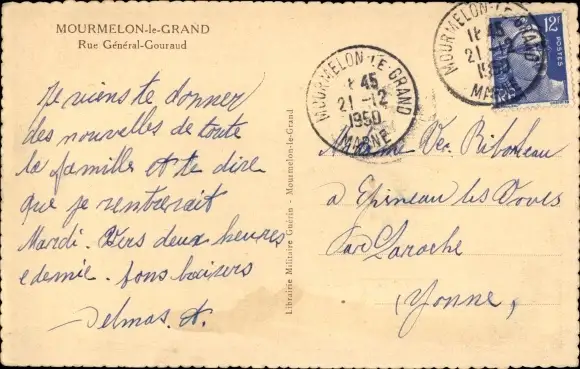 MOURMELON-le-GRAND
Rue Général-Gouraud
Je viens te donner
des nouvelles de toute
la famille et te dire
que je rentrerait
Mardi. Vers deux heures
e demie. bons baisers
Delmas. A.
Librairie Militaire Guérin - Mourmelon-le-Grand
MOURMELON-LE-GRAND
1t 45
21 -12
1950
MARNE
MOURMELON-LE-GRAND
1t 45
21 -12
1950
MARNE
12F
POSTES
Madame Vve
a Epineau les Voves
Par Laroche
(Yonne)